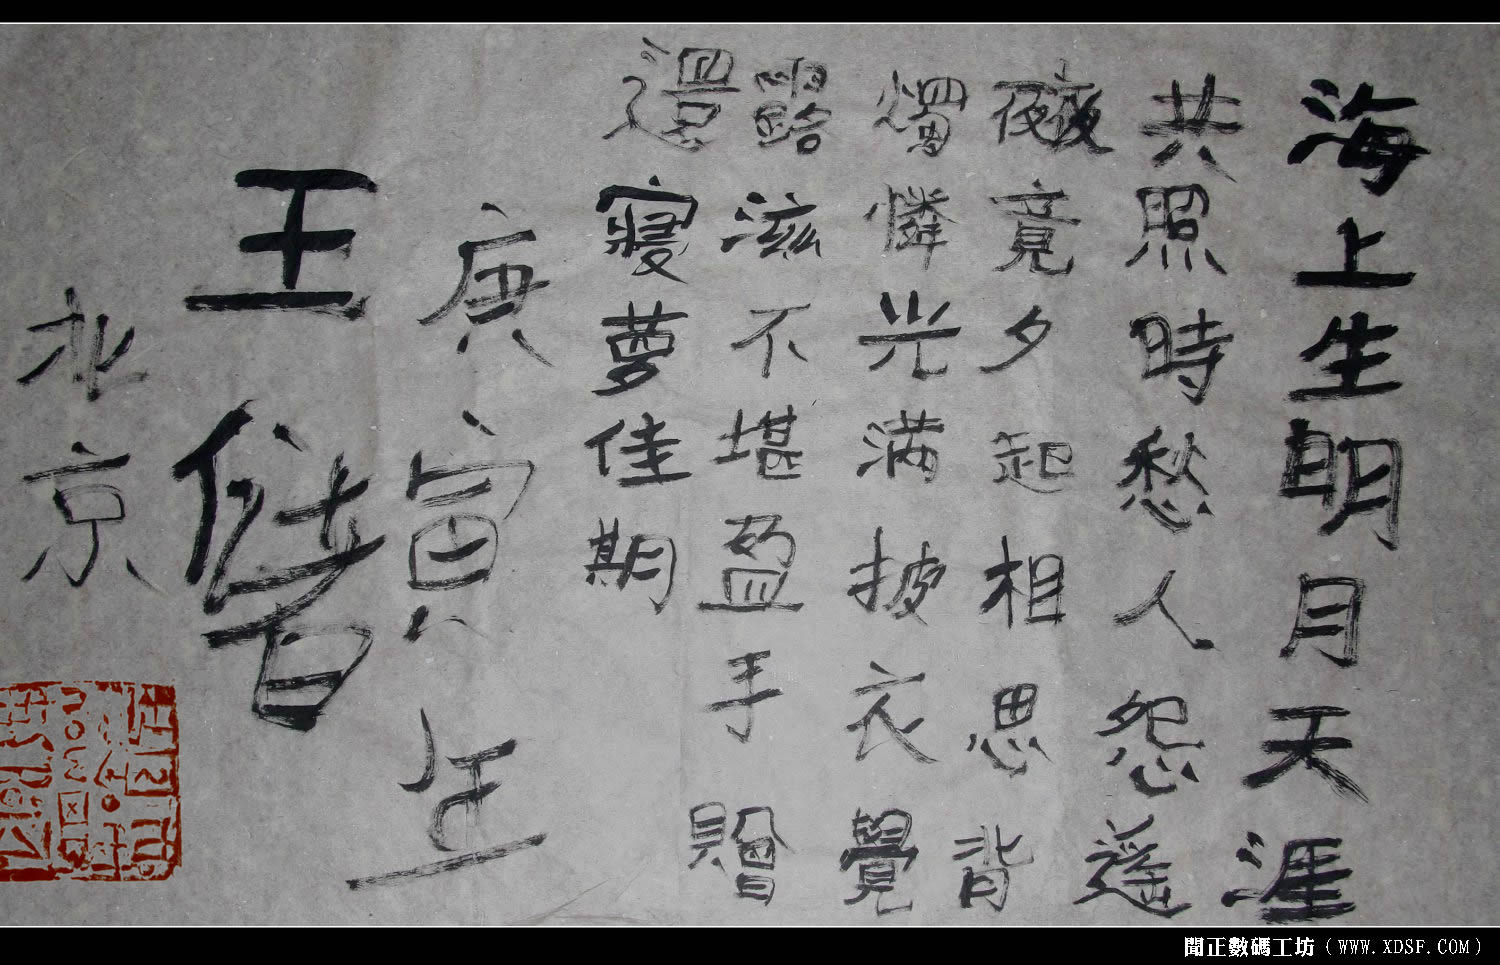 海上生明月天涯
共照時愁人怨遥
夜夜竟夕起相思背
燭憐光满披衣覺
露滋不堪盈手贈
還寢夢佳期
庚寅年
王储
北京
聞正數碼工坊（WWW.XDSF.COM）